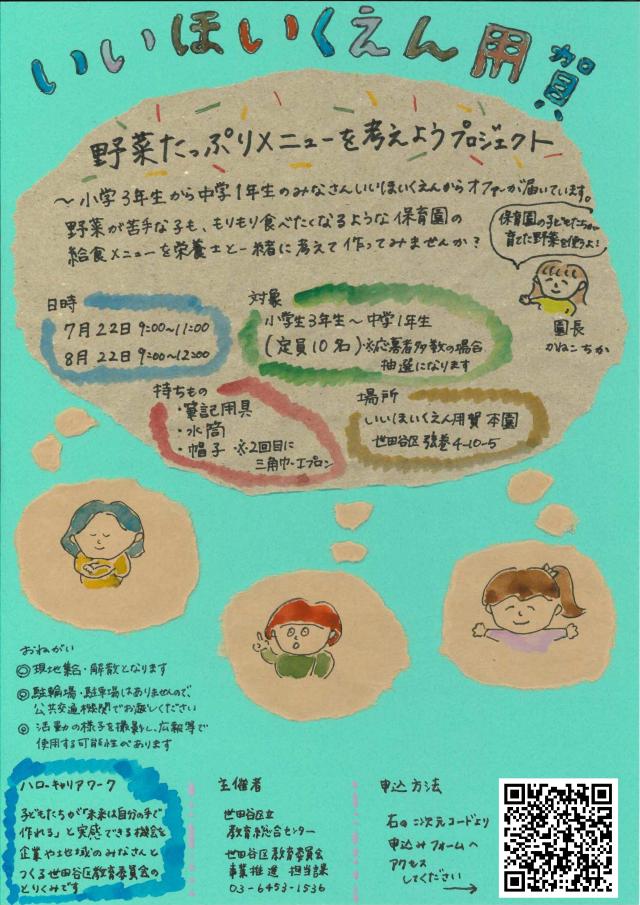 いいほいくえん用賀!!
野菜たっぷりメニューを考えようプロジェクト
～小学3年生から中学1年生のみなさんいいほいくえんからオファーが届いています。
野菜が苦手な子も、もりもり食べたくなるような保育園の
給食メニューを栄養士と一緒に考えて作ってみませんか?
保育園の子どもたちが
育てた野菜を使うよ!
園長
かねこちか
日時
7月22日 9:00～11:00
8月22日 9:00～12:00
対象
小学生3年生～中学1年生
(定員10名)※応募者多数の場合
抽選になります
持ちもの
・筆記用具
・水筒
・帽子 ※2回目に
三角巾・エプロン
場所
いいほいくえん用賀 本園
世田谷区 弦巻 4-10-5
おねがい
◎現地集合・解散となります
◎駐輪場・駐車場はありませんので、
公共交通機関でお越しください
◎活動の様子を撮影し、広報等で
使用する可能性があります
ハローキャリアワーク
子どもたちが「未来は自分の手で
作れる」と実感できる機会を
企業や地域のみなさんと
つくる世田谷区教育委員会の
とりくみです
主催者
世田谷区立
教育総合センター
世田谷区教育委員会
事業推進 担当課
03-6453-1536
申込方法
右の二次元コードより
申込みフォームへ
アクセス
してください